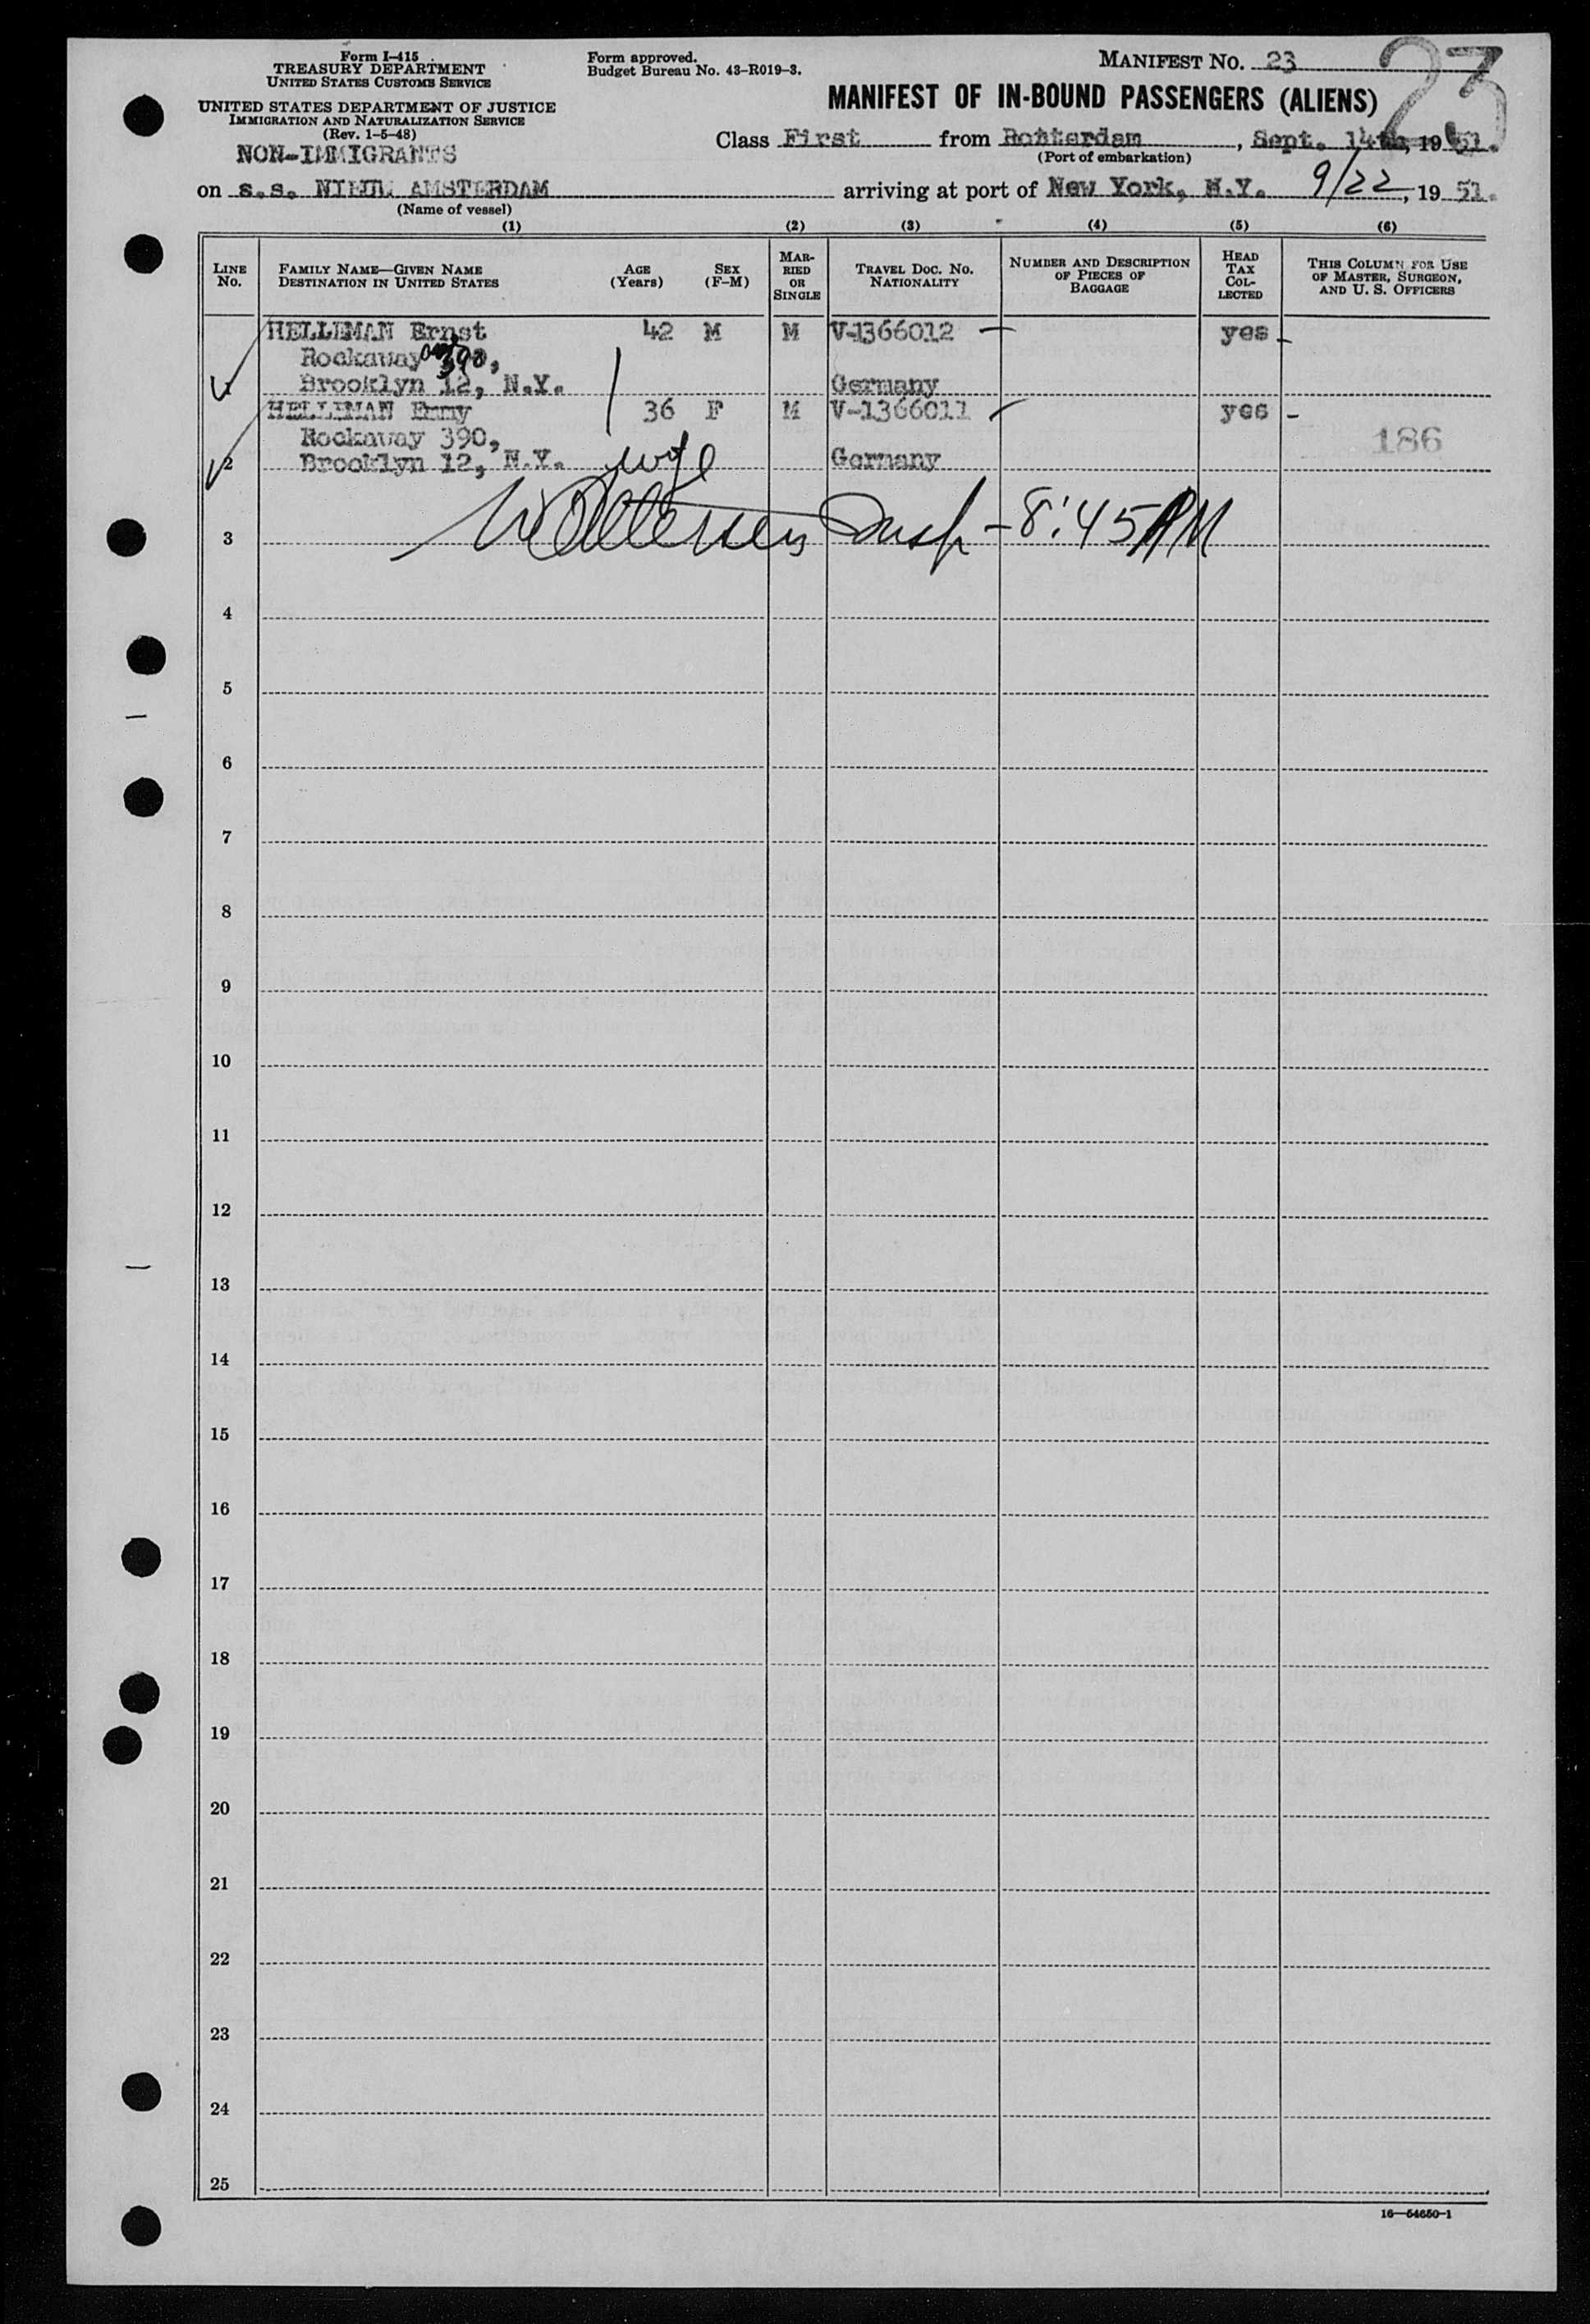 Form I-415
TREASURY DEPARTMENT
UNITED STATES CUSTOMS SERVICE
UNITED STATES DEPARTMENT OF JUSTICE
IMMIGRATION AND NATURALIZATION SERVICE
(Rev. 1-5-48)
NON-IMMIGRANTS
Form approved.
Budget Bureau No. 43-R019-3.
MANIFEST NO. 23
23
MANIFEST OF IN-BOUND PASSENGERS (ALIENS)
Class First from Rotterdam, Sept. 14th, 1951.
(Port of embarkation)
on s.s. AMSTERDAM arriving at port of New York, N.Y. 9/22, 1951.
(Name of vessel)
(1) (2) (3) (4) (5) (6)
LINE NO.
FAMILY NAME—GIVEN NAME
DESTINATION IN UNITED STATES
AGE (Years)
SEX (F-M)
MARRIED OR SINGLE
TRAVEL DOC. NO.
NATIONALITY
NUMBER AND DESCRIPTION OF PIECES OF BAGGAGE
HEAD TAX COLLECTED
THIS COLUMN FOR USE OF MASTER, SURGEON, AND U. S. OFFICERS
HELLEMAN Ernst 42 M M V-1366012 — yes -
Rockaway 390,
1 Brooklyn 12, N.Y. Germany
HELLEMAN Emmy 36 F M V-1366011 yes -
Rockaway 390, 186
2 Brooklyn 12, N.Y. wife Germany
3 Insp - 8:45 PM
4
5
6
7
8
9
10
11
12
13
14
15
16
17
18
19
20
21
22
23
24
25
16—54650-1